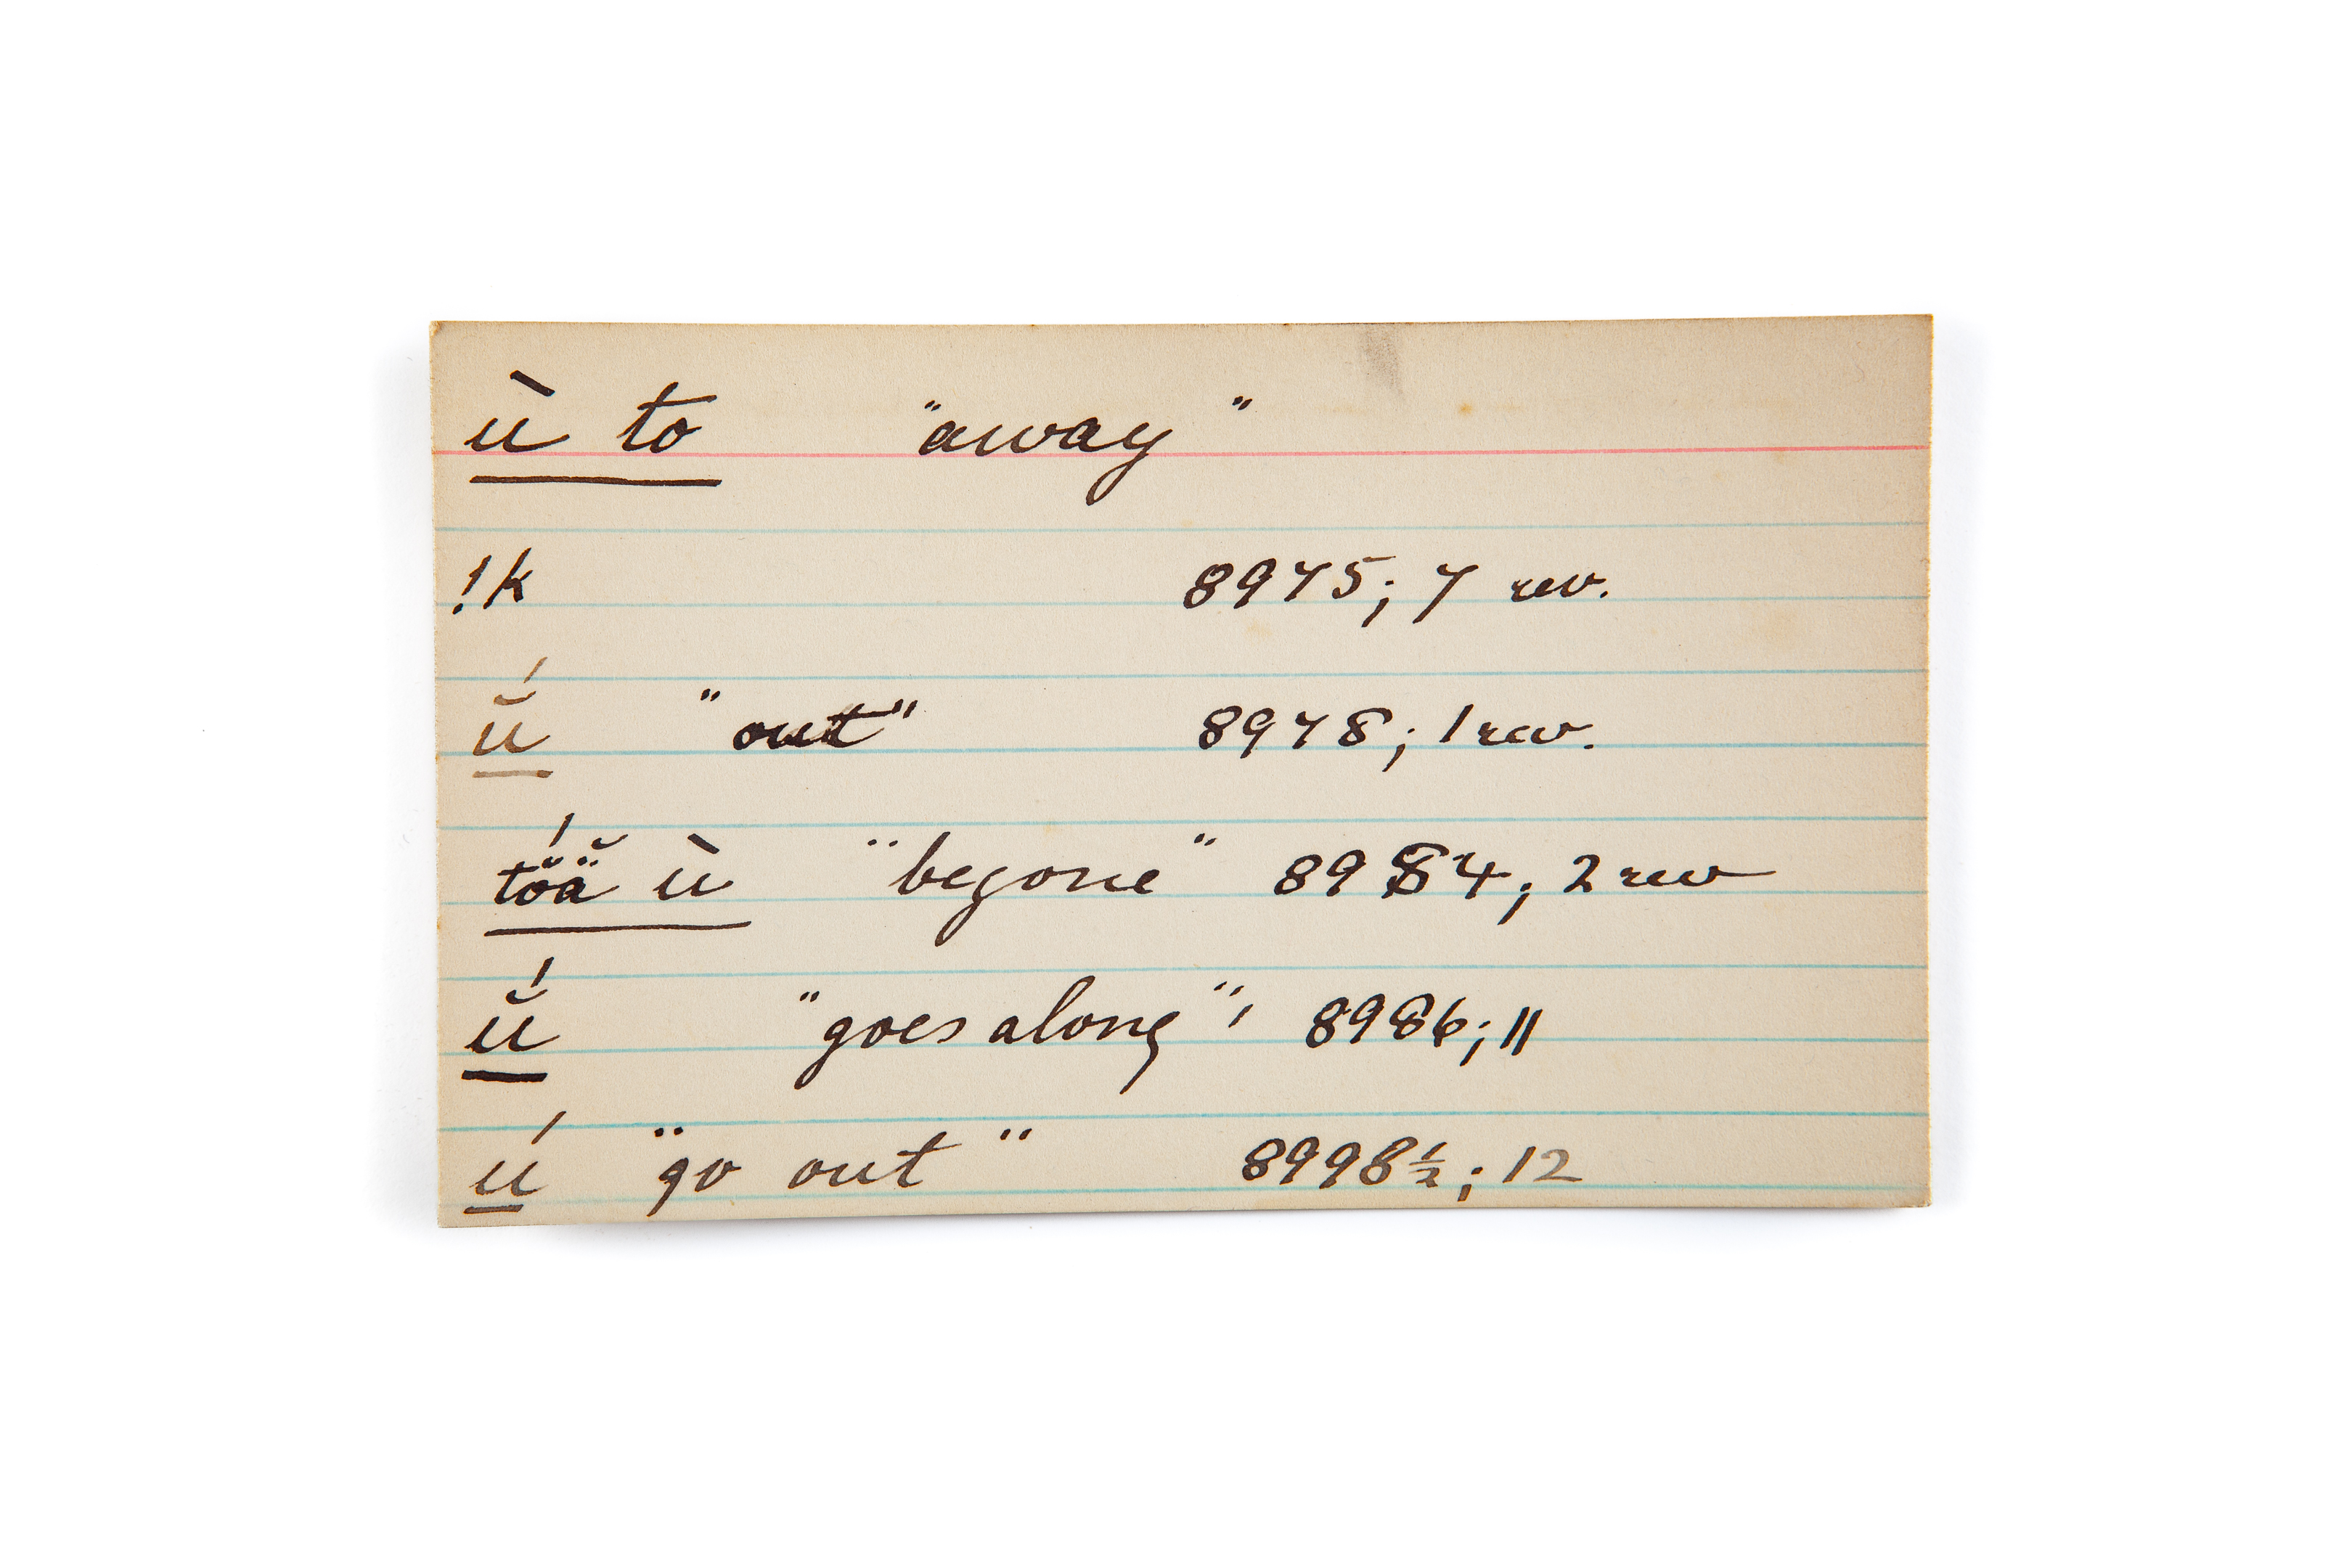 ù to "away"
!k 8975; 7 rev.
ŭ́ "out" 8978; 1 rev.
tŏ́ä̆ ù "begone" 8984; 2 rev
ŭ́ "goes along", 8986; 11
ú "go out" 8998½; 12